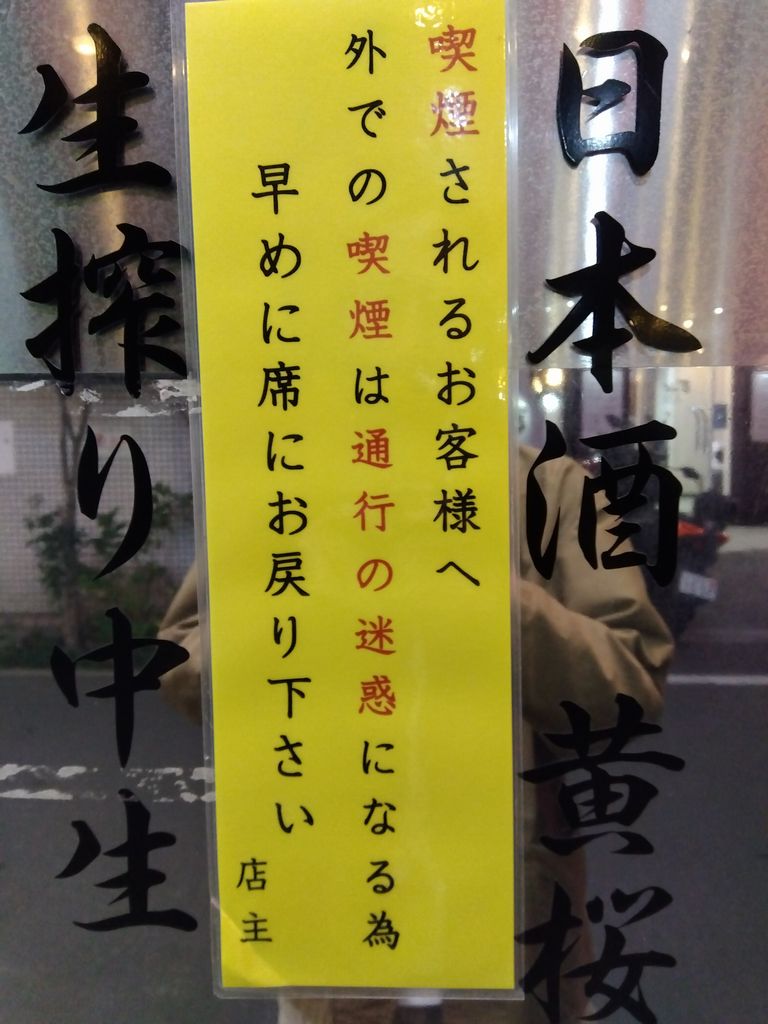 日本酒 黄桜
喫煙されるお客様へ
外での喫煙は通行の迷惑になる為
早めに席にお戻り下さい
店主
生搾り中生